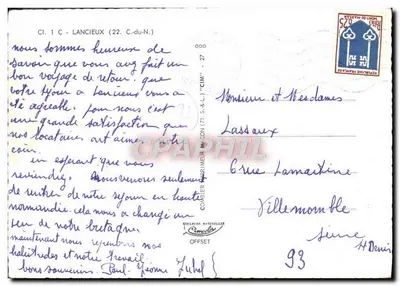 Cl. 1 C - LANCIEUX (22. C.-du-N.)
nous sommes heureuse de
savoir que vous avez fait un
bon voyage de retour. que
votre séjour a Lancieux vous a
été agréable. pour nous c'est
une grande satisfaction que
nos locataires ont aimé notre
coin.
en espérant que vous
reviendrez. Nous venons seulement
de rentrer de notre séjour en haute
normandie. cela nous a changé un
peu de notre bretagne.
maintenant nous reprenons nos
habitudes et notre travail.
bons souvenirs. Paul. Yvonne
COMBIER IMPRIMEUR MACON (71. S.-&-L.) "CIM"
OFFSET
Monsieur et Mesdames
Lasseux
6 rue Lamartine
Villemomble
Seine
St Denis
93
CPAPHIL